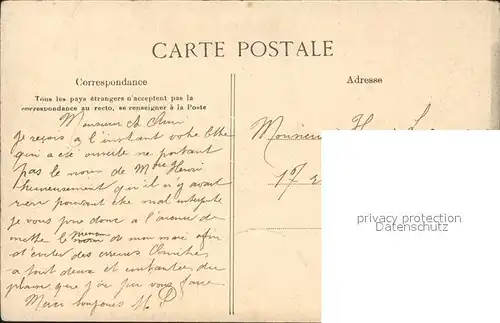 CARTE POSTALE
Correspondance
Adresse
Tous les pays étrangers n'acceptent pas la
correspondance au recto, se renseigner à la Poste
Monsieur et Ami
Je reçois à l'instant votre lettre
qui a été ouverte ne portant
pas le nom de Mme Henri
heureusement qu'il n'y avait
rien pouvant être mal interprété
je vous prie donc à l'avenir de
mettre le prénom de mon mari afin
d'éviter des erreurs Amitiés
à tout deux et enchantée du
plaisir que j'ai pu vous faire
Merci toujours M. P
Monsieur
privacy protection
Datenschutz